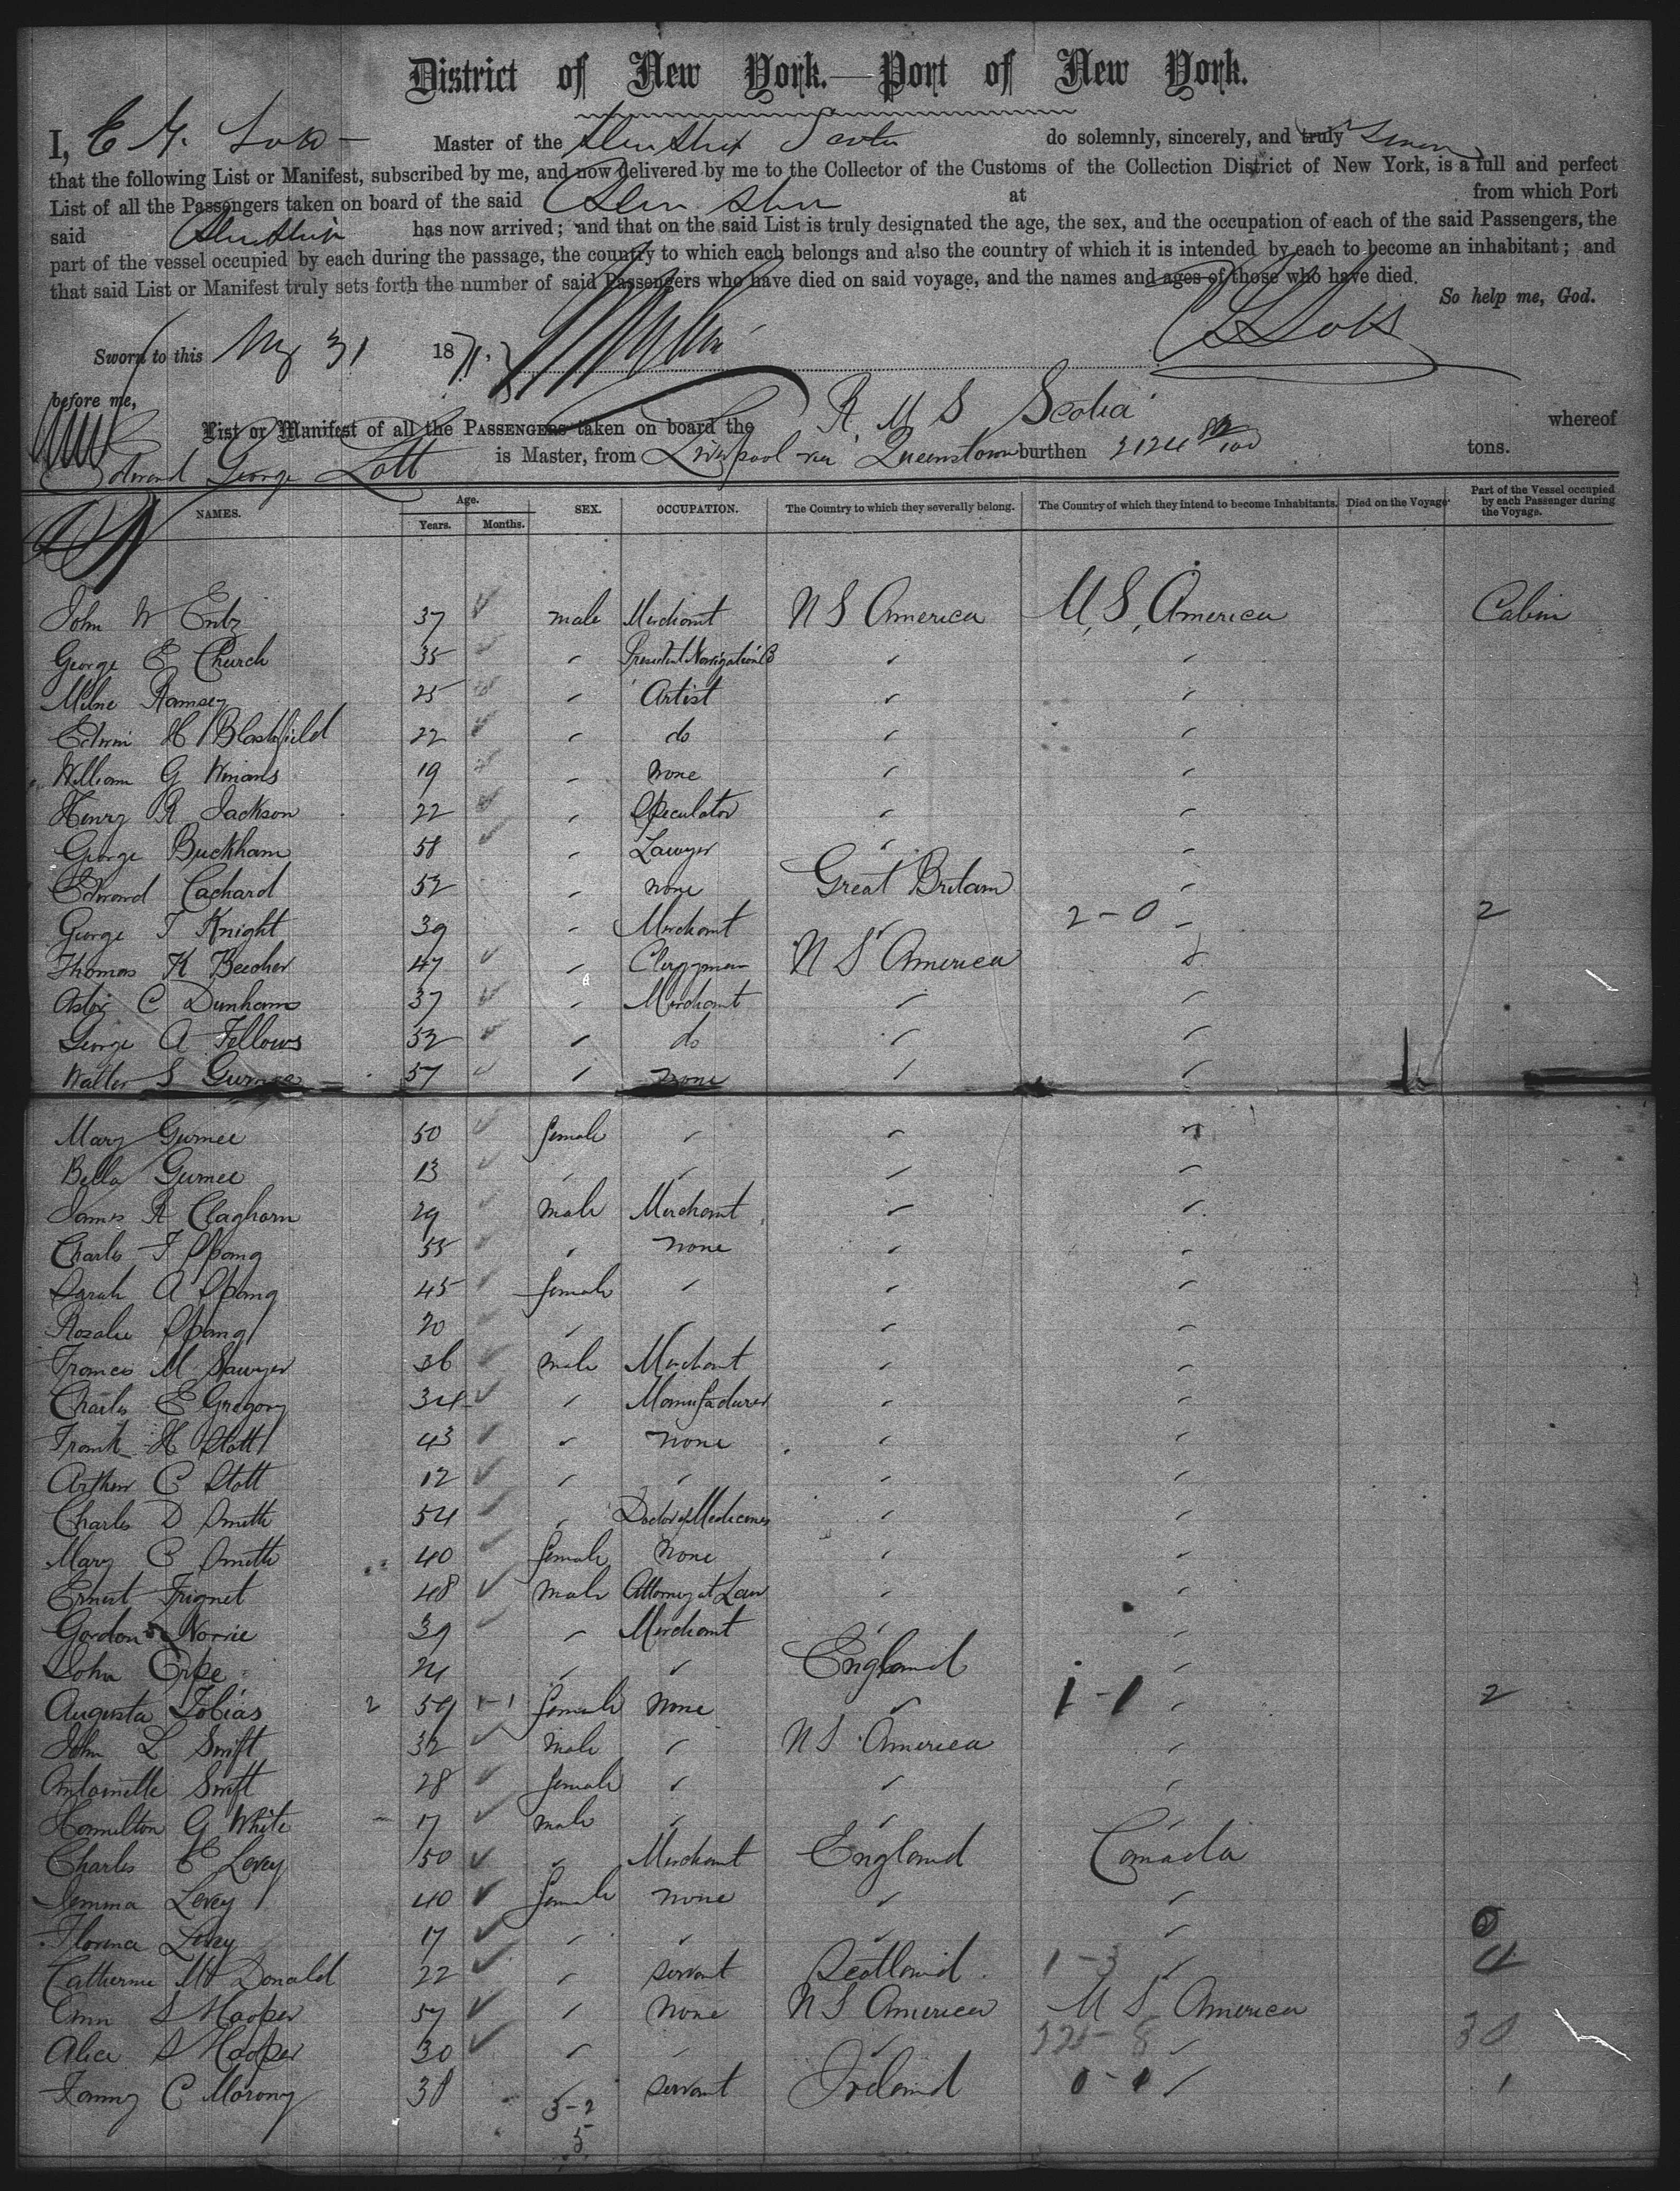 District of New York.—Port of New York.
I, E G. Lott Master of the Steam Ship Scotia do solemnly, sincerely, and truly swear
that the following List or Manifest, subscribed by me, and now delivered by me to the Collector of the Customs of the Collection District of New York, is a full and perfect
List of all the Passengers taken on board of the said Steam Ship at from which Port
said Steam Ship has now arrived; and that on the said List is truly designated the age, the sex, and the occupation of each of the said Passengers, the
part of the vessel occupied by each during the passage, the country to which each belongs and also the country of which it is intended by each to become an inhabitant; and
that said List or Manifest truly sets forth the number of said Passengers who have died on said voyage, and the names and ages of those who have died.
So help me, God.
Sworn to this May 31 1871. E G Lott
before me,
List or Manifest of all the PASSENGERS taken on board the R. M. S Scotia whereof
Edward George Lott is Master, from Liverpool via Queenstown burthen 2124 tons.
NAMES. Age. Years. Months. SEX. OCCUPATION. The Country to which they severally belong. The Country of which they intend to become Inhabitants. Died on the Voyage. Part of the Vessel occupied by each Passenger during the Voyage.
John W Entz 37 male Merchant U S America U.S. America Cabin
George E Church 35 " President Navigation Co " "
Milne Ramsey 25 " Artist " "
Edwin H Blashfield 22 " do " "
William G Winans 19 " none " "
Henry R Jackson 22 " Speculator " "
George Buckham 58 " Lawyer " "
Edmond Cachard 52 " none Great Britain "
George T Knight 39 " Merchant " 2-0 " 2
Thomas K Beecher 47 " Clergyman U S America "
C Dunham 37 " Merchant " "
George A Fellows 52 " do " "
Walter S Gurnee 57 " none " "
Mary Gurnee 50 female " " "
Bella Gurnee 13 " " " "
James R Claghorn 29 male Merchant " "
Charles F Spang 55 " none " "
Sarah A Spang 45 female " " "
Rosalie Spang 20 " " " "
Francis M Sawyer 36 male Merchant " "
Charles E Gregory 34 " Manufacturer " "
Frank H Stott 43 " none " "
Arthur C Stott 12 " " " "
Charles D Smith 54 " Doctor of Medicines " "
Mary C Smith 40 female none " "
Ernest Frignet 48 male Attorney at Law " "
Gordon Norrie 39 " Merchant " "
John Orpe 24 " " England "
Augusta Tobias 2 59 1-1 female none " 1-1 " 2
John L Swift 32 male " U S America "
Antoinette Swift 28 female " " "
Hamilton G White 17 male " " "
Charles E Levey 50 " Merchant England Canada
Jemima Levey 40 female none " "
Florence Levey 17 " " " " 0
Catherine Mc Donald 22 " servant Scotland 1-3 " 4
Ann S Hooper 57 " none U S America U S America
Alice S Hooper 30 " " " "
Fanny C Morony 38 " servant Ireland 0-1 " 1
3-2
5